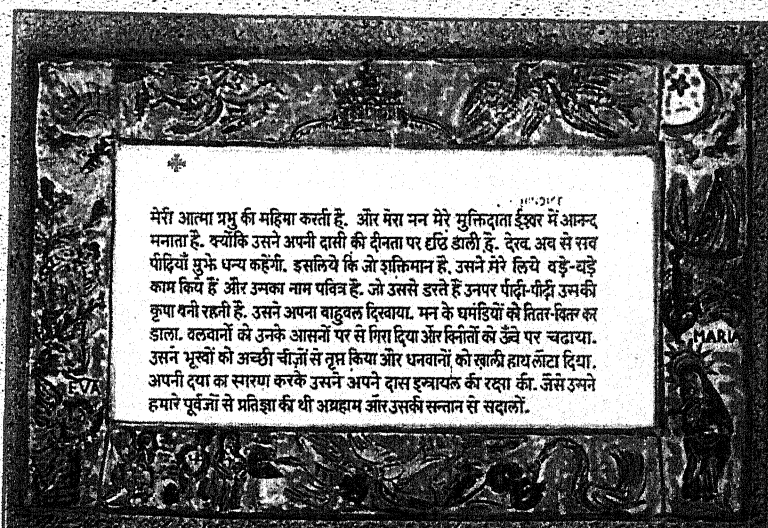 मेरी आत्मा प्रभु की महिमा करती है. और मेरा मन मेरे मुक्तिदाता ईश्वर में आनन्द
मनाता है. क्योंकि उसने अपनी दासी की दीनता पर दृष्टि डाली है. देख, अब से सब
पीढ़ियाँ मुझे धन्य कहेंगी. इसलिये कि जो शक्तिमान है, उसने मेरे लिये बड़े-बड़े
काम किये हैं और उसका नाम पवित्र है. जो उससे डरते हैं उनपर पीढ़ी-पीढ़ी उसकी
कृपा बनी रहती है. उसने अपना बाहुबल दिखाया. मन के घमंडियों को तितर-बितर कर
डाला. बलवानों को उनके आसनों पर से गिरा दिया और विनीतों को ऊँचे पर चढाया.
उसने भूखों को अच्छी चीज़ों से तृप्त किया और धनवानों को खाली हाथ लौटा दिया.
अपनी दया का स्मरण करके उसने अपने दास इस्रायल की रक्षा की. जैसे उसने
हमारे पूर्वजों से प्रतिज्ञा की थी अब्रहाम और उसकी सन्तान से सदालों.
EVA
MARIA